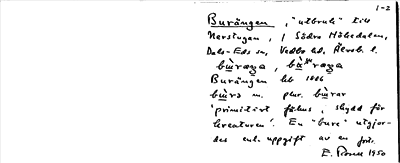 1-2
Burängen, "utbruk" till
Norstugan, i Södra Höhedalen,
Dals-Eds sn, Vedbo hd, Älvsb. l.
Burängen bl. 1886
bùrə m. plur. bùrar
'primitivt fähus, skydd för
kreaturen'. En "bure" utgjor-
des enl. uppgift av en
E. 1950